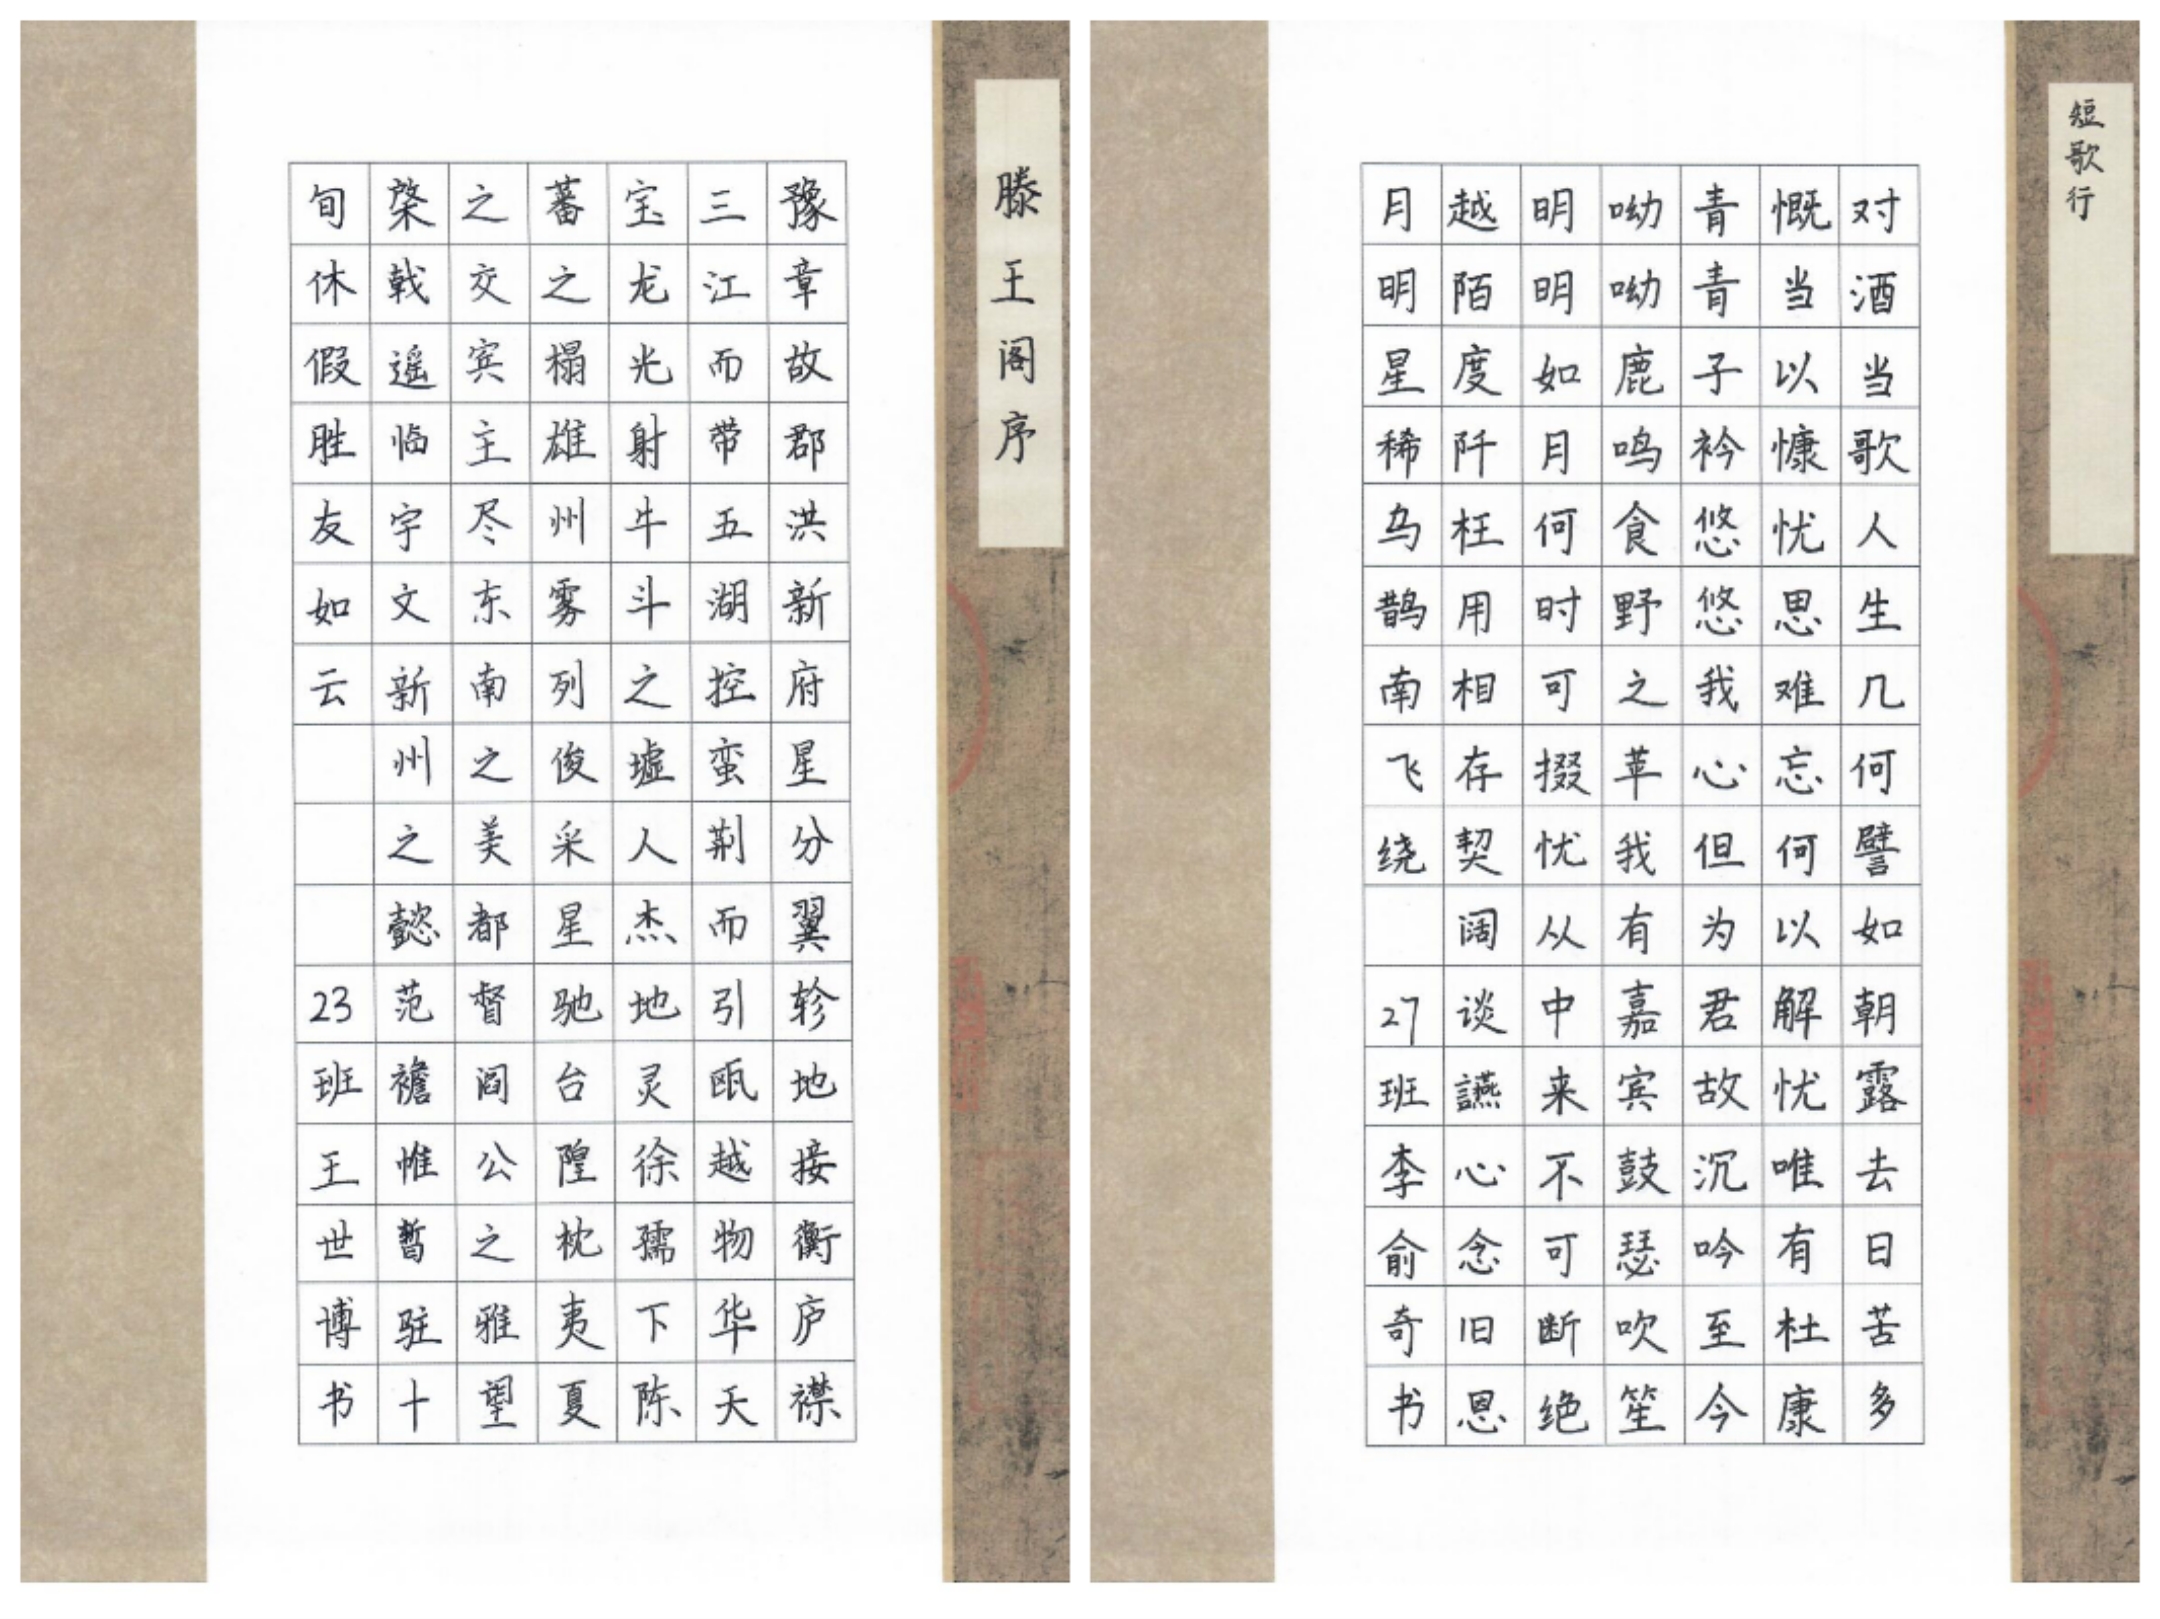 滕王阁序
豫章故郡洪新府星分翼轸地接衡庐襟
三江而带五湖控蛮荆而引瓯越物华天
宝龙光射牛斗之墟人杰地灵徐孺下陈
蕃之榻雄州雾列俊采星驰台隍枕夷夏
之交宾主尽东南之美都督阎公之雅望
棨戟遥临宇文新州之懿范襜帷暂驻十
旬休假胜友如云 23班王世博书
短歌行
对酒当歌人生几何譬如朝露去日苦多
慨当以慷忧思难忘何以解忧唯有杜康
青青子衿悠悠我心但为君故沉吟至今
呦呦鹿鸣食野之苹我有嘉宾鼓瑟吹笙
明明如月何时可掇忧从中来不可断绝
越陌度阡枉用相存契阔谈讌心念旧恩
月明星稀乌鹊南飞绕 27班李俞奇书